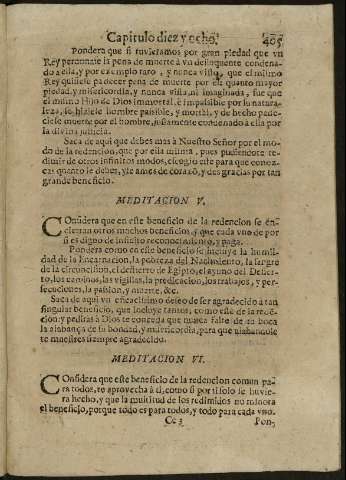 Capitulo diez y ocho. 405
Pondera que si tuvieramos por gran piedad que vn
Rey perdonasse la pena de muerte à vn delinquente condena-
do à ella, y por exemplo raro, y nunca visto, que el mismo
Rey quisiesse padecer pena de muerte por èl: quanto mayor
piedad, y misericordia, y nunca vista, ni imaginada, fue que
el mismo Hijo de Dios immortal, è impassible por su natura-
leza, se hiziesse hombre passible, y mortal, y de hecho pade-
ciesse muerte por el hombre, justamente condenado à ella por
la divina justicia.
Saca de aqui que debes mas à Nuestro Señor por el mo-
do de la redencion, que por ella misma, pues pudiendote re-
dimir de otros infinitos modos, escogiò este para que conoz-
cas quanto le debes, y le ames de coraçõ, y des gracias por tan
grande beneficio.
MEDITACION V.
COnsidera que en este beneficio de la redencion se en-
cierran otros muchos beneficios, y que cada vno de por
si es digno de infinito reconocimiento, y paga.
Pondera como en este beneficio se incluye la humil-
dad de la Encarnacion, la pobreza del Nacimiento, la sangre
de la circuncision, el destierro de Egipto, el ayuno del Desier-
to, los caminos, las vigilias, la predicacion, los trabajos, y per-
secuciones, la passion, y muerte, &c.
Saca de aqui vn eficacissimo deseo de ser agradecido à tan
singular beneficio, que incluye tantos, como este de la reden-
cion; y pediràs à Dios te conceda que nunca falte de tu boca
la alabança de su bondad, y misericordia, para que alabandole
te muestres siempre agradecido.
MEDITACION VI.
COnsidera que este beneficio de la redencion comun pa-
ra todos, te aprovecha à ti, como si por ti solo se huvie-
ra hecho, y que la multitud de los redimidos no minora
el beneficio, porque todo es para todos, y todo para cada vno.
Cc 3 Pon-